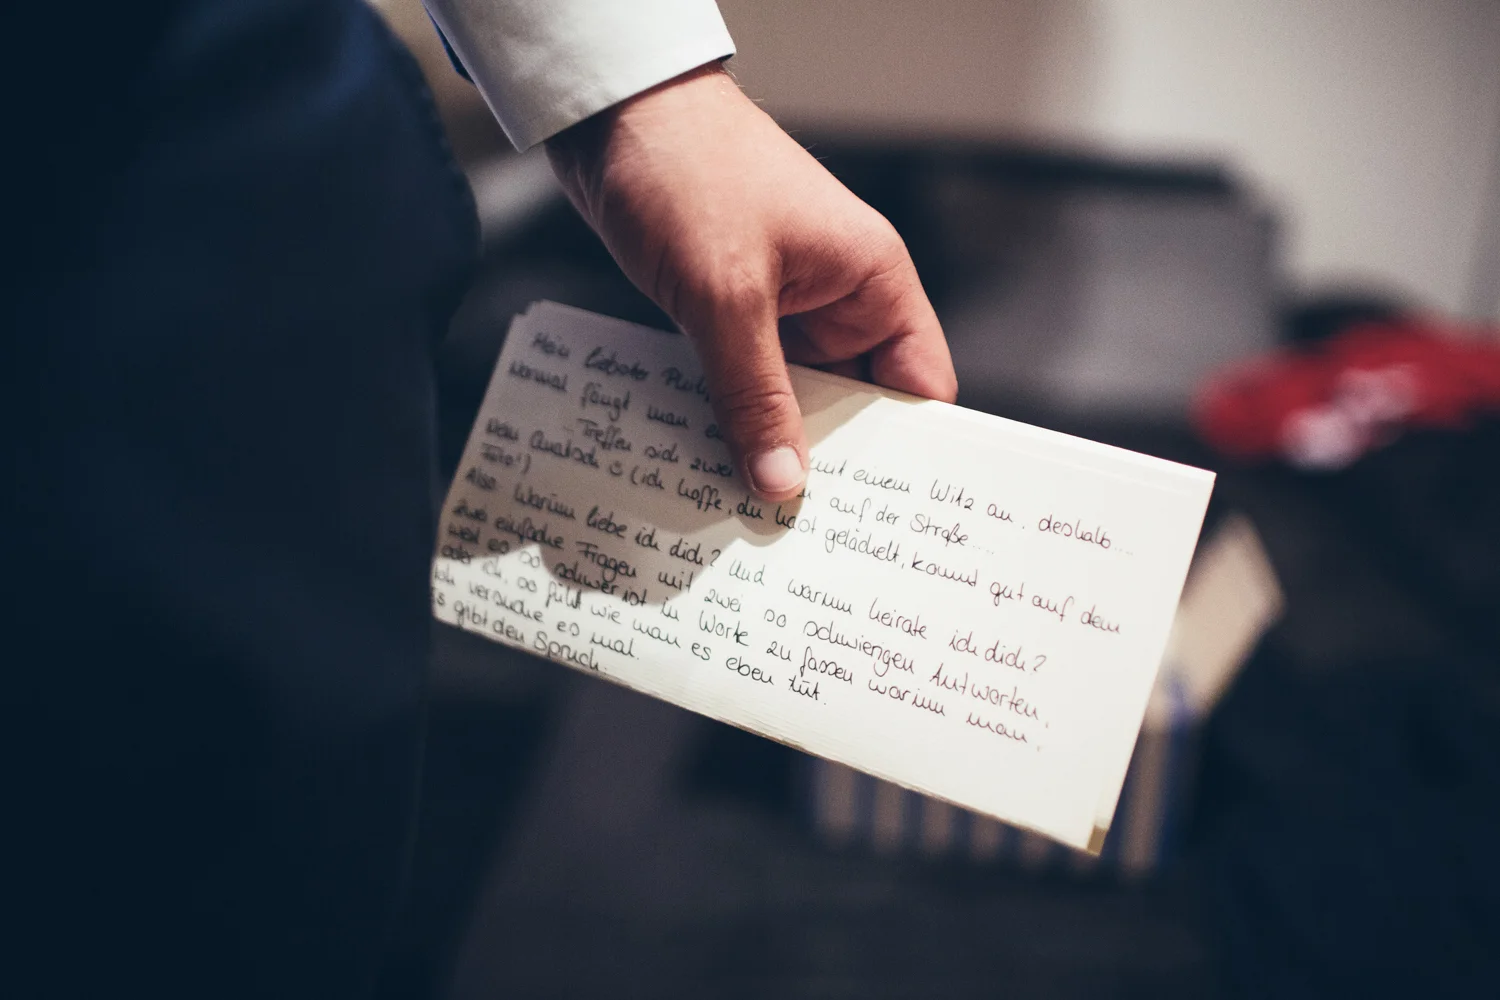 Mein liebster
Normal fängt man mit einem Witz an, deshalb....
...Treffen sich zwei auf der Straße....
Nein Quatsch ☺ (ich hoffe, du hast gelächelt, kommt gut auf dem
Foto!)
Also Warum liebe ich dich? Und warum heirate ich dich?
Zwei einfache Fragen mit zwei so schwierigen Antworten,
weil es so schwer ist in Worte zu fassen warum man,
oder ich, so fühlt wie man es eben tut.
Ich versuche es mal.
Es gibt den Spruch: